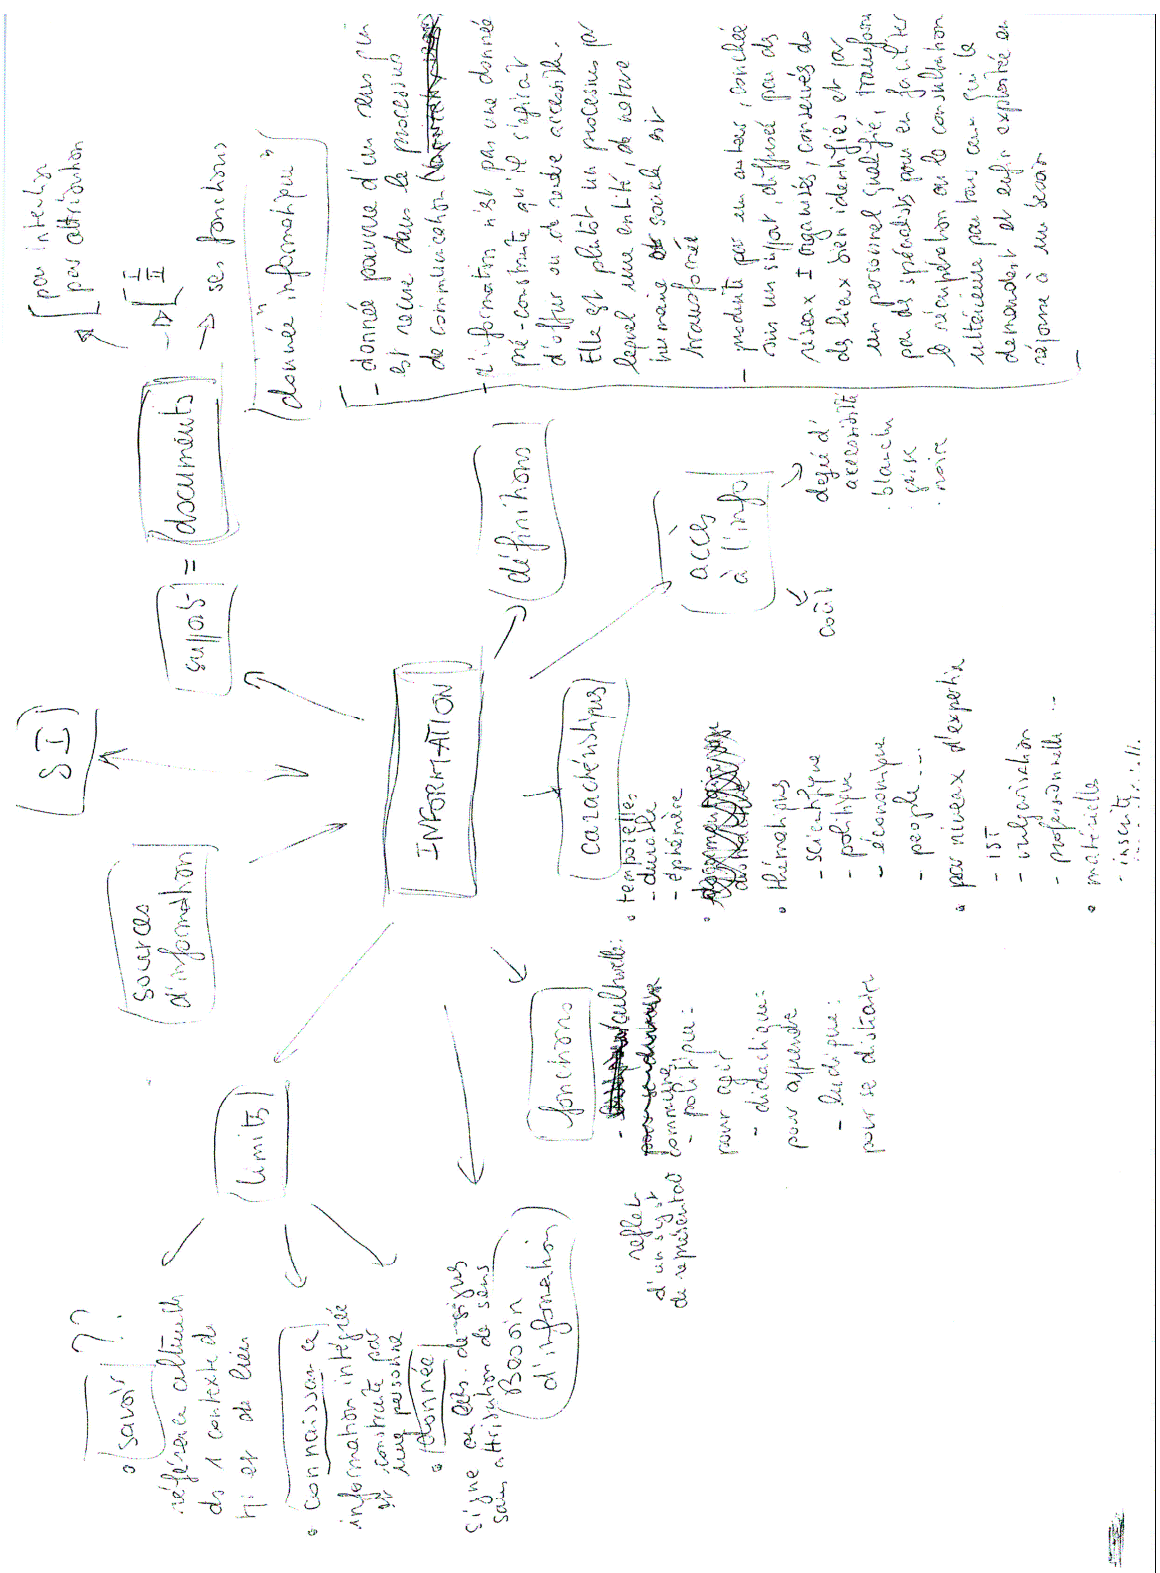 SI
support
=
documents
par intention
par attribution
I
II
→ ses fonctions
"donnée informatique"
sources
d'information
INFORMATION
définitions
- donnée pourvue d'un sens qui
est reçue dans le processus
de communication
- l'information n'est pas une donnée
pré-construite qu'il s'agirait
d'offrir ou de rendre accessible.
Elle est plutôt un processus par
lequel une entité, de nature
humaine ou sociale est
transformée
- produite par un auteur, couchée
sur un support, diffusée par des
réseaux ± organisés, conservés ds
des lieux bien identifiés et par
un personnel qualifié, transformée
par des spécialistes pour en faciliter
la récupération ou la consultation
ultérieure par tous ceux qui la
demandent et enfin exploitée en
réponse à un besoin
accès
à l'info
degré d'
accessibilité
. blanche
. grise
. noire
coût
caractéristiques
• temporelles
- durable
- éphémère
• thématiques
- scientifique
- politique
- économique
- people...
• par niveaux d'expertise
- IST
- vulgarisation
- professionnelle ...
• matérielles
- inscrite
fonctions
- culturelle:
reflet
d'un syst
de représentat° commune
- politique:
pour agir
- didactique:
pour apprendre
- ludique:
pour se distraire
Besoin
d'information
limites
• savoir ??
référence culturelle
ds 1 contexte de
tps et de lieu
• connaissance
information intégrée
et construite par
une personne
• donnée
signe ou ens. de signes
sans attribution de sens